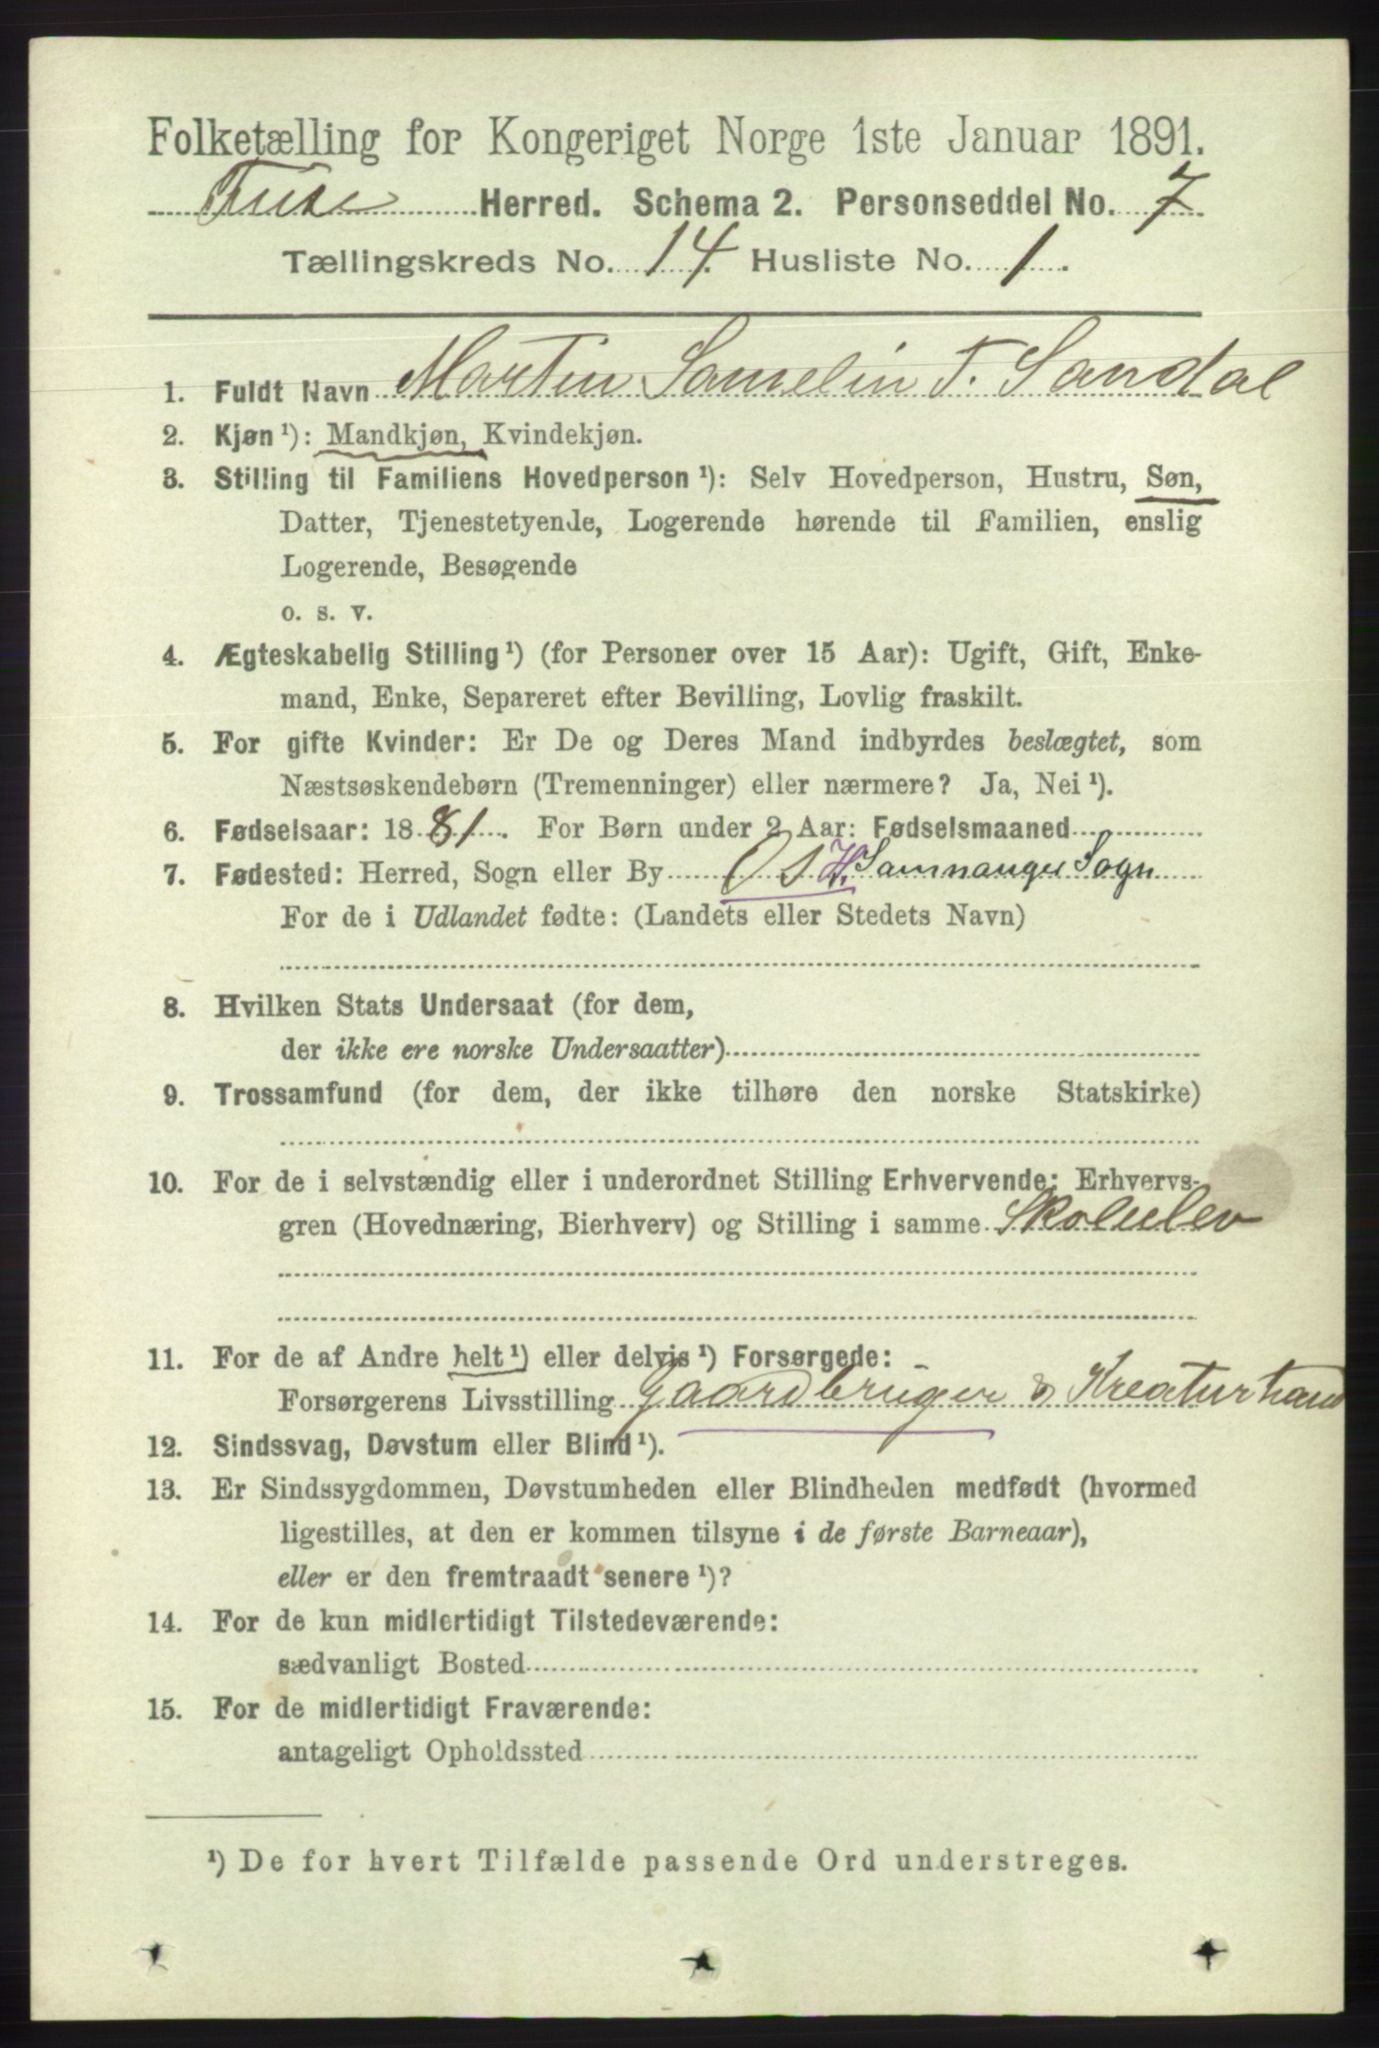 Folketælling for Kongeriget Norge 1ste Januar 1891.
Fuse Herred. Schema 2. Personseddel No. 7
Tællingskreds No. 14. Husliste No. 1.
1. Fuldt Navn Martin Samelin T. Sandal
2. Kjøn ¹): Mandkjøn, Kvindekjøn.
3. Stilling til Familiens Hovedperson ¹): Selv Hovedperson, Hustru, Søn,
Datter, Tjenestetyende, Logerende hørende til Familien, enslig
Logerende, Besøgende
o. s. v.
4. Ægteskabelig Stilling ¹) (for Personer over 15 Aar): Ugift, Gift, Enke-
mand, Enke, Separeret efter Bevilling, Lovlig fraskilt.
5. For gifte Kvinder: Er De og Deres Mand indbyrdes beslægtet, som
Næstsøskendebørn (Tremenninger) eller nærmere? Ja, Nei ¹).
6. Fødselsaar: 1881. For Børn under 2 Aar: Fødselsmaaned
7. Fødested: Herred, Sogn eller By Os H. Samnanger Sogn
For de i Udlandet fødte: (Landets eller Stedets Navn)
8. Hvilken Stats Undersaat (for dem,
der ikke ere norske Undersaatter)
9. Trossamfund (for dem, der ikke tilhøre den norske Statskirke)
10. For de i selvstændig eller i underordnet Stilling Erhvervende: Erhvervs-
gren (Hovednæring, Bierhverv) og Stilling i samme Skoleelev
11. For de af Andre helt ¹) eller delvis ¹) Forsørgede:
Forsørgerens Livsstilling Gaardbruger & Kreaturhand
12. Sindssvag, Døvstum eller Blind ¹).
13. Er Sindssygdommen, Døvstumheden eller Blindheden medfødt (hvormed
ligestilles, at den er kommen tilsyne i de første Barneaar),
eller er den fremtraadt senere ¹)?
14. For de kun midlertidigt Tilstedeværende:
sædvanligt Bosted
15. For de midlertidigt Fraværende:
antageligt Opholdssted
¹) De for hvert Tilfælde passende Ord understreges.